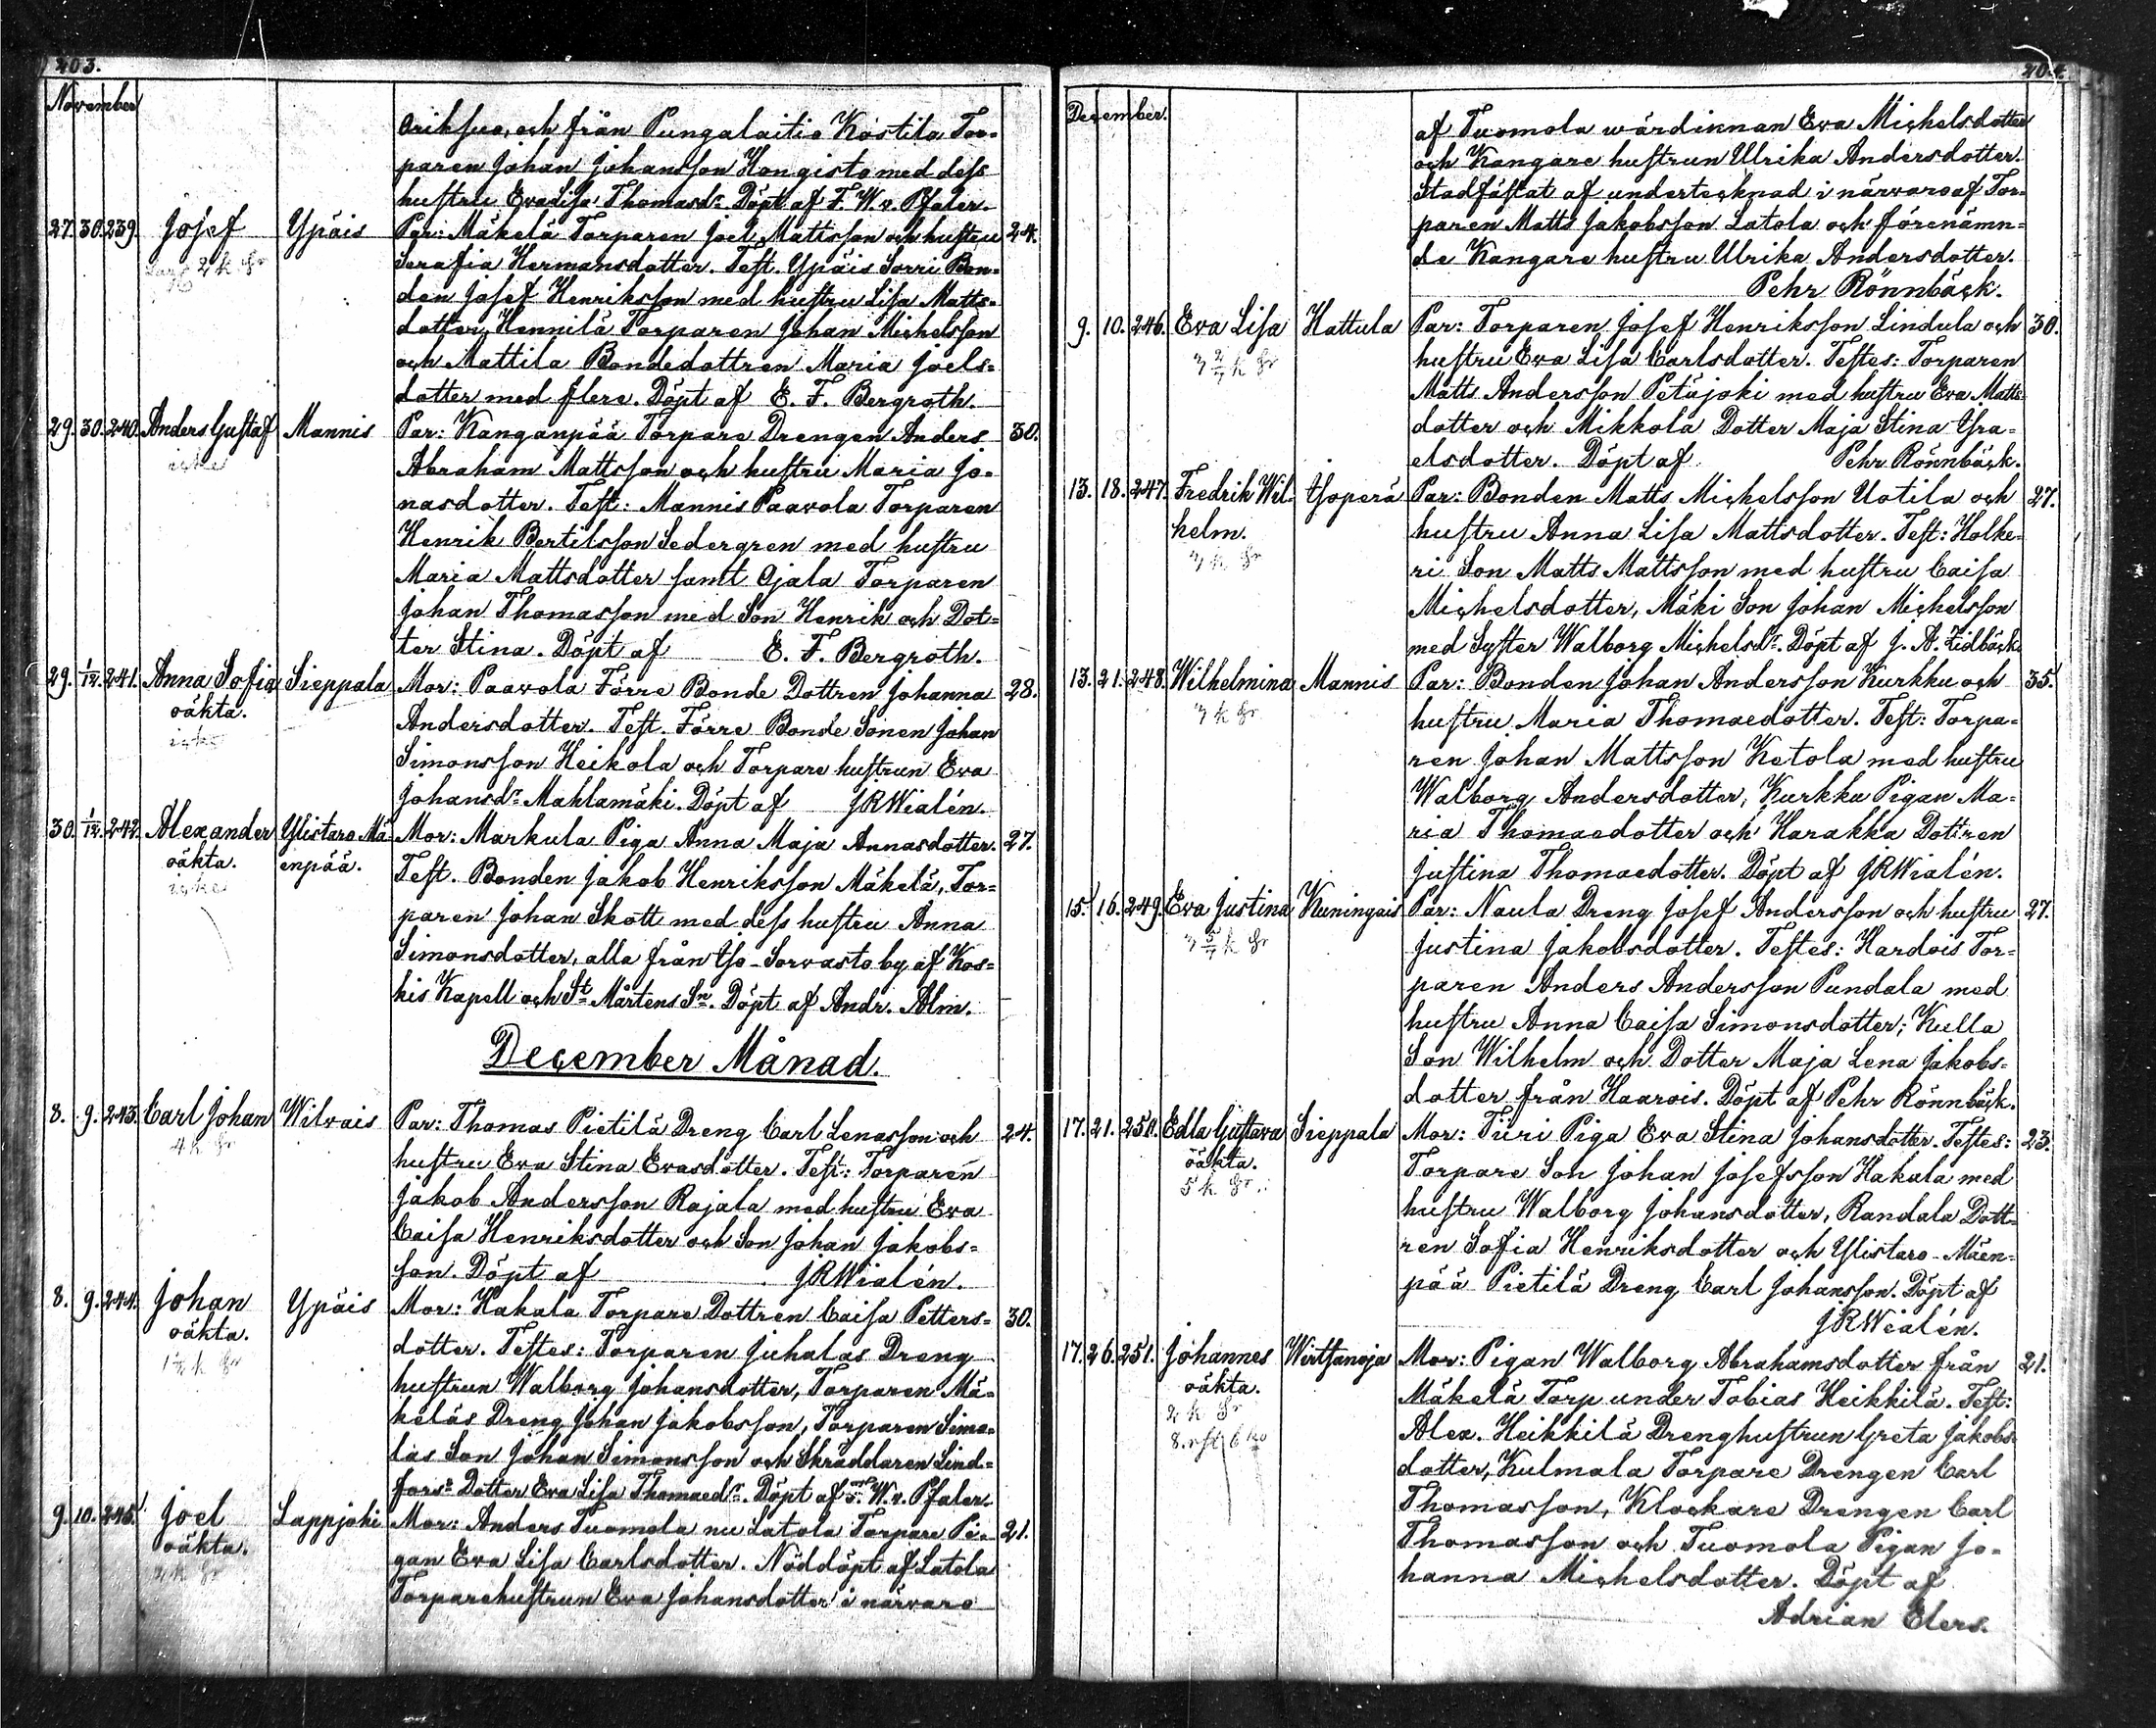 403.
November
Oriksuo, och från Pungalaitio Kostila Tor-
paren Johan Johansson Hongisto med dess
hustru Eva Lisa Thomasdr. Döpt af F. W. v. Pfaler.
27. 30. 239. Josef Ypäis Par: Mäkelä Torparen Joel Mattsson och hustru 24.
Serafia Hermansdotter. Test. Ypäis Sorri Bon-
den Josef Henriksson med hustru Lisa Matts-
dotter, Hennilä Torparen Johan Michelsson
och Mattila Bondedottren Maria Joels-
dotter med flere. Döpt af E. F. Bergroth.
29. 30. 240. Anders Gustaf Mannis Par: Kanganpää Torpare Drengen Anders 30.
icke Abraham Mattsson och hustru Maria Jo-
nasdotter. Test: Mannis Paavola Torparen
Henrik Bertilsson Sedergren med hustru
Maria Mattsdotter samt Ojala Torparen
Johan Thomasson med Son Henrik och Dot-
ter Stina. Döpt af E. F. Bergroth.
29. 1/12. 241. Anna Sofia Sieppala Mor: Paavola Förre Bonde Dottren Johanna 28.
oäkta. Andersdotter. Test. Förre Bonde Sonen Johan
icke Simonsson Heikola och Torpare hustrun Eva
Johansdr. Mahlamäki. Döpt af JRWialén.
30. 1/12. 242. Alexander Ylistaro Mä- Mor: Markula Piga Anna Maja Annasdotter. 27.
oäkta. enpää. Test. Bonden Jakob Henriksson Mäkelä, Tor-
icke paren Johan Skott med dess hustru Anna
Simonsdotter, alla från Iso-Sorvasto by af Kos-
kis Kapell och St Mårtens Sn. Döpt af Andr. Alm.
December Månad.
8. 9. 243. Carl Johan Wilvais Par: Thomas Pietilä Dreng Carl Lenasson och 24.
4 k hustru Eva Stina Evasdotter. Test: Torparen
Jakob Andersson Rajala med hustru Eva
Caisa Henriksdotter och Son Johan Jakobs-
son. Döpt af JRWialén.
8. 9. 244. Johan Ypäis Mor: Hakala Torpare Dottren Caisa Petters- 30.
oäkta. dotter. Testes: Torparen Juhalas Dreng
hustrun Walborg Johansdotter, Torparen Mä-
keläs Dreng Johan Jakobsson, Torparen Simo-
las Son Johan Simonsson och Skräddaren Lind-
fors's Dotter Eva Lisa Thomaedr. Döpt af F. W. v. Pfaler.
9. 10. 245. Joel Lappjoki Mor: Anders Tuomola nu Latola Torpare Pi- 21.
oäkta. gan Eva Lisa Carlsdotter. Nöddöpt af Latola
Torparehustrun Eva Johansdotter i närvaro
404.
December.
af Tuomola wärdinnan Eva Michelsdotter
och Kangare hustrun Ulrika Andersdotter.
Stadfästat af undertecknad i närvaro af Tor-
paren Matts Jakobsson Latola och förenämn-
de Kangare hustru Ulrika Andersdotter.
Pehr Rönnbäck.
9. 10. 246. Eva Lisa Hattula Par: Torparen Josef Henriksson Lindula och 30.
hustru Eva Lisa Carlsdotter. Testes: Torparen
Matts Andersson Petäjoki med hustru Eva Matts-
dotter och Mikkola Dotter Maja Stina Isra-
elsdotter. Döpt af Pehr Rönnbäck.
13. 18. 247. Fredrik Wil- Isoperä Par: Bonden Matts Michelsson Uotila och 27.
helm. hustru Anna Lisa Mattsdotter. Test: Holke-
ri Son Matts Mattsson med hustru Caisa
Michelsdotter, Mäki Son Johan Michelsson
med Syster Walborg Michelsdr. Döpt af J. A. Lidbäck.
13. 21. 248. Wilhelmina Mannis Par: Bonden Johan Andersson Kurkku och 35.
hustru Maria Thomaedotter. Test: Torpa-
ren Johan Mattsson Ketola med hustru
Walborg Andersdotter, Kurkku Pigan Ma-
ria Thomaedotter och Harakka Dottren
Justina Thomaedotter. Döpt af JRWialén.
15. 16. 249. Eva Justina Kuningais Par: Naula Dreng Josef Andersson och hustru 27.
Justina Jakobsdotter. Testes: Hardois Tor-
paren Anders Andersson Pundala med
hustru Anna Caisa Simonsdotter; Kulla
Son Wilhelm och Dotter Maja Lena Jakobs-
dotter från Haarois. Döpt af Pehr Rönnbäck.
17. 21. 250. Edla Gustava Sieppala Mor: Turi Piga Eva Stina Johansdotter. Testes: 23.
oäkta. Torpare Son Johan Josefsson Hakula med
5 k hustru Walborg Johansdotter, Randala Dott-
ren Sofia Henriksdotter och Ylistaro-Mäen-
pää Pietilä Dreng Carl Johansson. Döpt af
JRWialén.
17. 26. 251. Johannes Wirtsanoja Mor: Pigan Walborg Abrahamsdotter från 21.
oäkta. Mäkelä Torp under Tobias Heikkilä. Test:
Alex. Heikkilä Drenghustrun Greta Jakobs-
dotter, Kulmala Torpare Drengen Carl
Thomasson, Klockare Drengen Carl
Thomasson och Tuomola Pigan Jo-
hanna Michelsdotter. Döpt af
Adrian Elers.